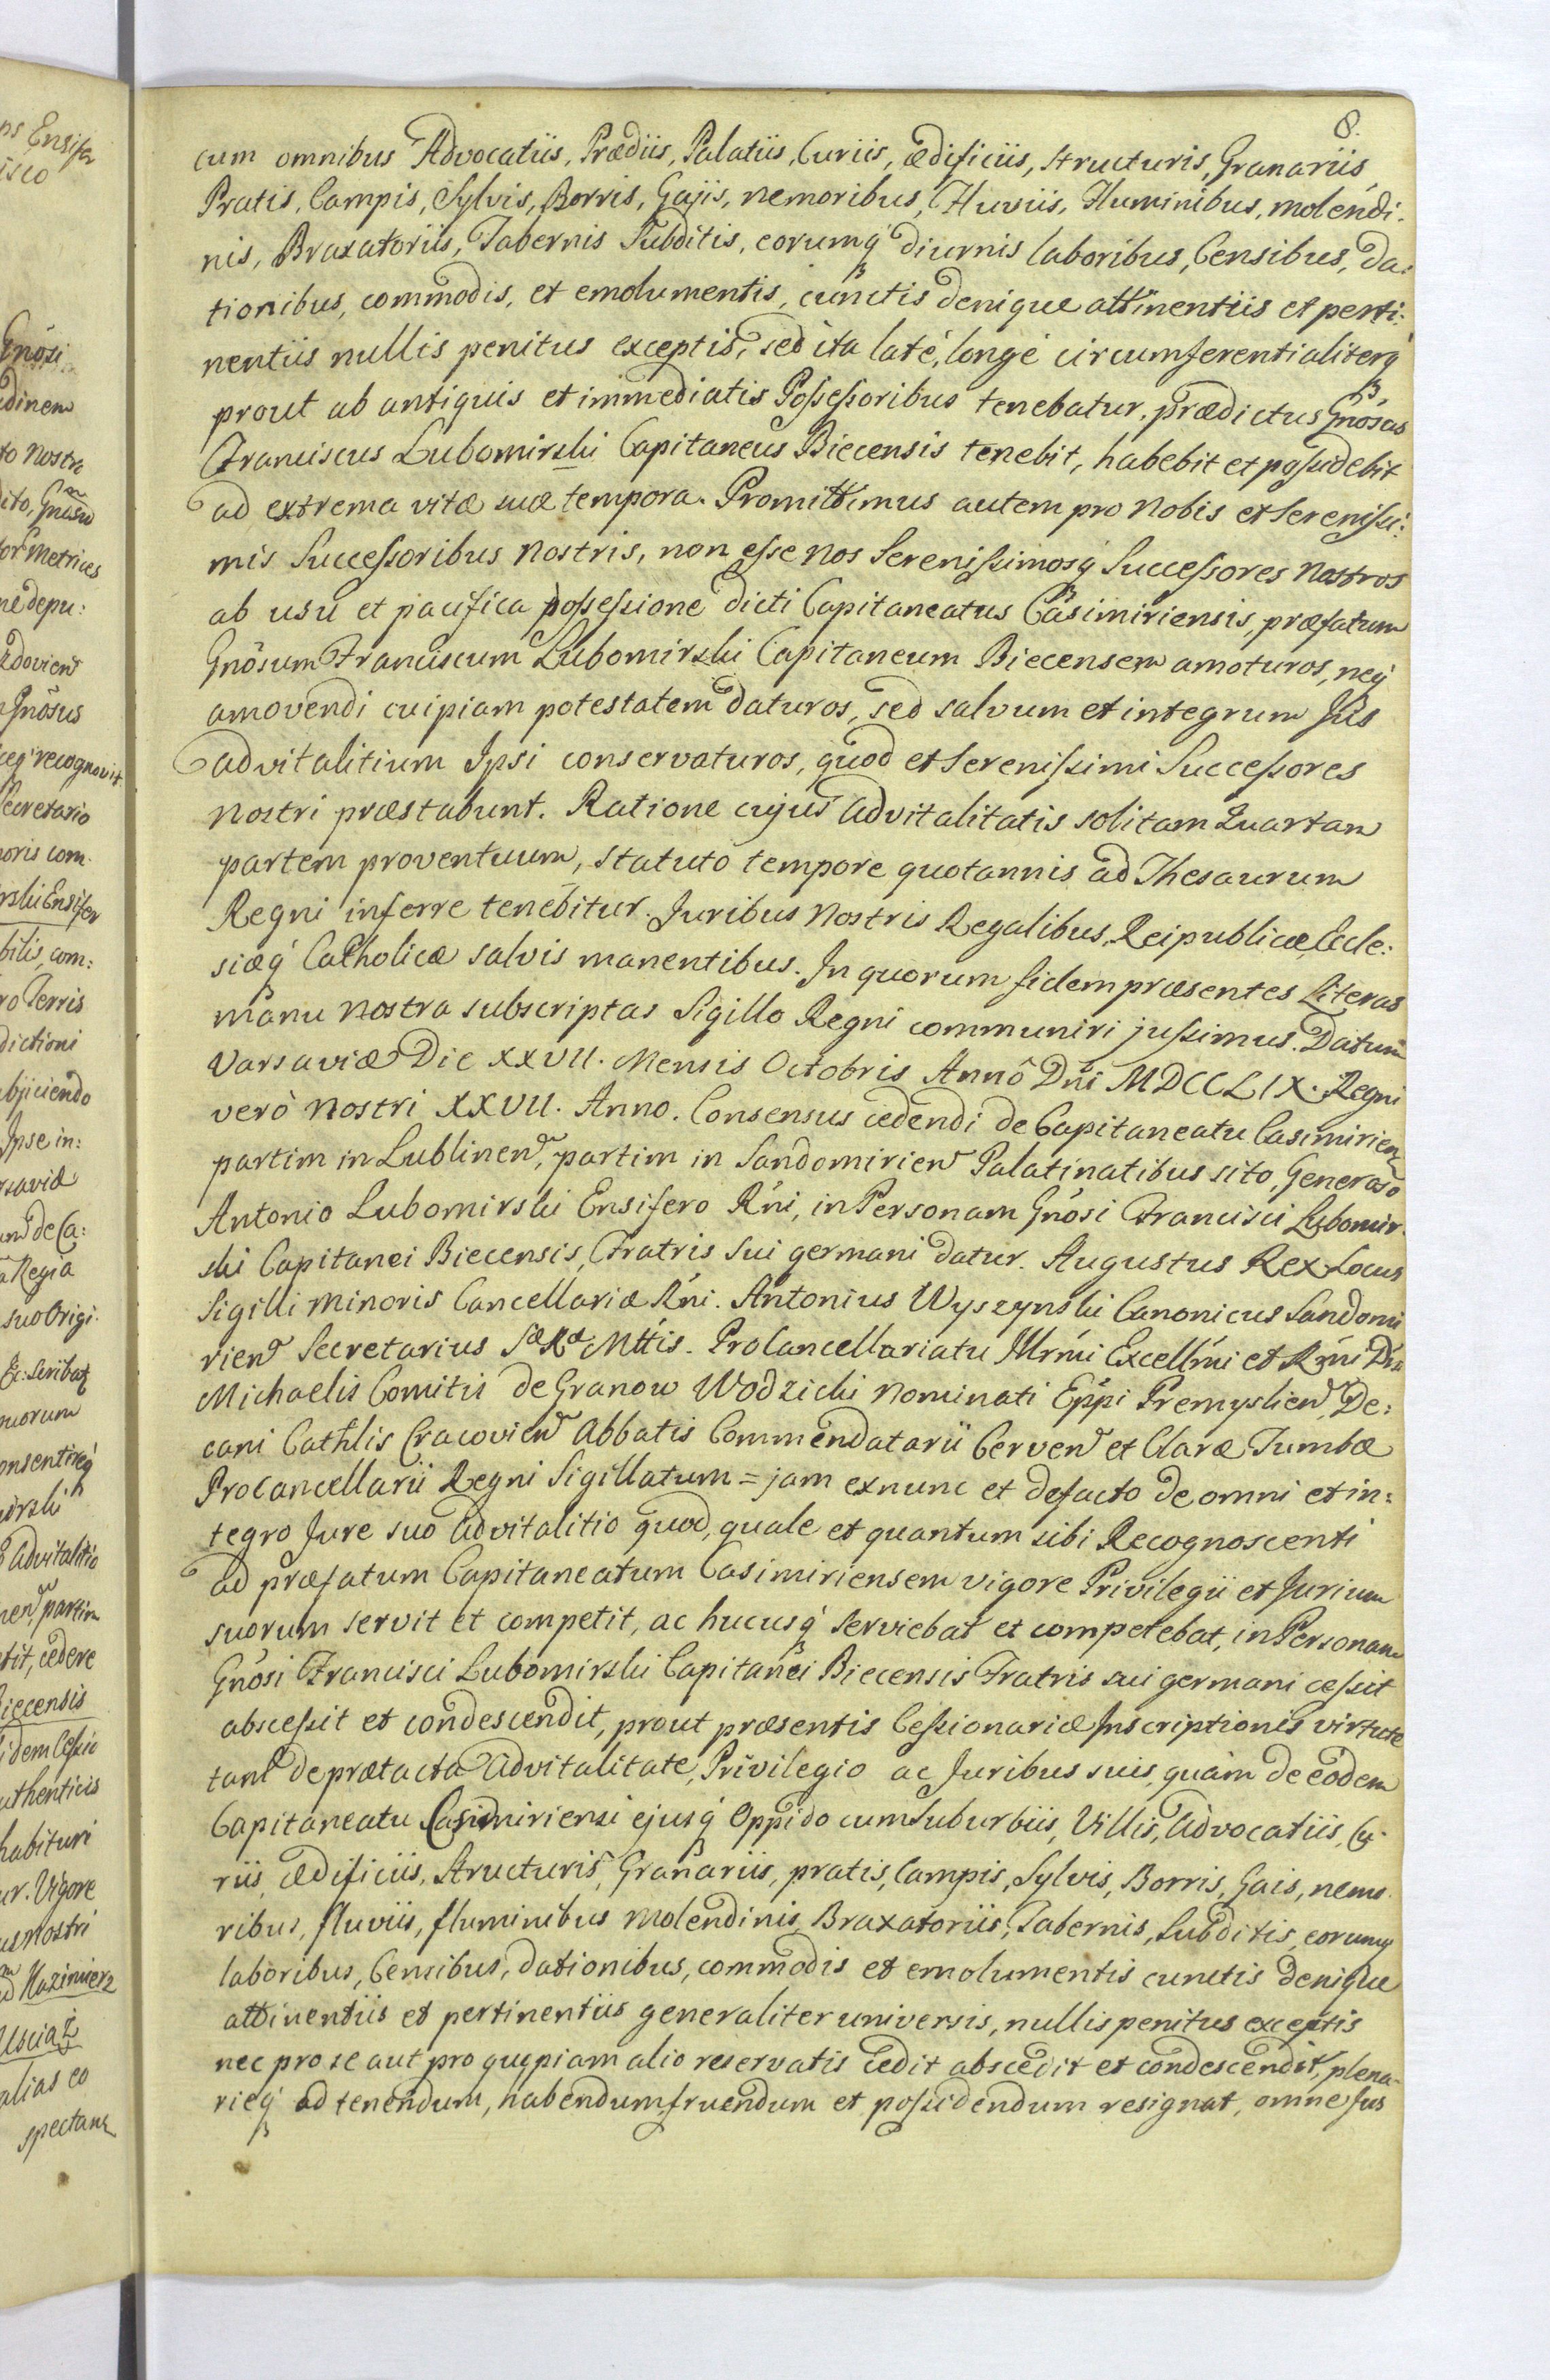 8.
cum omnibus Advocatiis, Prædiis, Palatiis, Curiis, ædificiis, structuris, Granariis
Pratis, Campis, Sylvis, Borris, Gajis, nemoribus, Fluviis, Fluminibus, molendi.
nis, Braxatoriis, Tabernis Subditis, eorumq́ diurnis laboribus, Censibus, da:
tionibus, commodis, et emolumentis, cunctis denique attinentiis et perti:
nentiis nullis penitus exceptis, sed ita laté, longé circumferentialiterq́
prout ab antiquis et immediatis Possessoribus tenebatur, prædictus Gnōsus
Franciscus Lubomirski Capitaneus Biecensis tenebit, habebit et possidebit
ad extrema vitæ suæ tempora. Promittimus autem pro Nobis et Serenissi:
mis Successoribus Nostris, non esse Nos Serenissimosq́ Successores Nostros
ab usu et pacifica possessione dicti Capitaneatus Casimiriensis, præfatum
Gnōsum Franciscum Lubomirski Capitaneum Biecensem amoturos, neq́
amovendi cuipiam potestatem daturos, sed salvum et integrum Jus
advitalitium Ipsi conservaturos, quod et Serenissimi Successores
Nostri præstabunt. Ratione cujus advitalitatis solitam Quartam
partem proventuum, statuto tempore quotannis ad Thesaurum
Regni inferre tenebitur. Juribus Nostris Regalibus, Reipublicæ, Eccle:
siæq́ Catholicæ salvis manentibus. In quorum fidem præsentes Literas
manu Nostra subscriptas Sigillo Regni communiri jussimus. Datum
Varsaviæ Die XXVII. Mensis Octobris Annô Dni MDCCLIX. Regni
verò Nostri XXVII. Anno. Consensus cedendi de Capitaneatu Casimirien
partim in Lublinen, partim in Sandomirien Palatinatibus sito, Generoso
Antonio Lubomirski Ensifero Rni, in Personam Gnōsi Francisci Lubomir.
ski Capitanei Biecensis, Fratris sui germani datur. Augustus Rex Locus
Sigilli Minoris Cancellariæ Rni. Antonius Wyszynski Canonicus Sandomi
rien Secretarius Sæ Ræ Mttis. ProCancellariatu Illrmi Excellmi et Rmi Dni
Michaelis Comitis de Granow Wodzicki Nominati Eppi Premyslien, De:
cani Cathlis Cracovien Abbatis Commendatarii Cerven et Claræ Tumbæ
ProCancellarii Regni Sigillatum = jam exnunc et defacto de omni et in:
tegro Jure suo advitalitio quod, quale et quantum sibi Recognoscenti
ad præfatum Capitaneatum Casimiriensem vigore Privilegii et Jurium
suorum servit et competit, ac hucusq́ serviebat et competebat, in Personam
Gnōsi Francisci Lubomirski Capitanei Biecensis Fratris sui germani cessit
abscessit et condescendit, prout præsentis Cessionariæ Inscriptionis virtute
tam de prætacta advitalitate, Privilegio ac Juribus suis, quàm de eodem
Capitaneatu Casimiriensi ejusq́ Oppido cum Suburbiis, Villis, Advocatiis, Cu-
riis, ædificiis, structuris, Granariis, pratis, Campis, Sylvis, Borris, Gais, nemo.
ribus, fluviis, fluminibus Molendinis, Braxatoriis, Tabernis, Subditis, eorumq́
laboribus, Censibus, dationibus, commodis et emolumentis cunctis denique
attinentiis et pertinentiis generaliter universis, nullis penitus exceptis
nec pro se aut pro quopiam alio reservatis cedit abscedit et condescendit, plena-
rieq́ ad tenendum, habendum fruendum et possidendum resignat, omne Jus